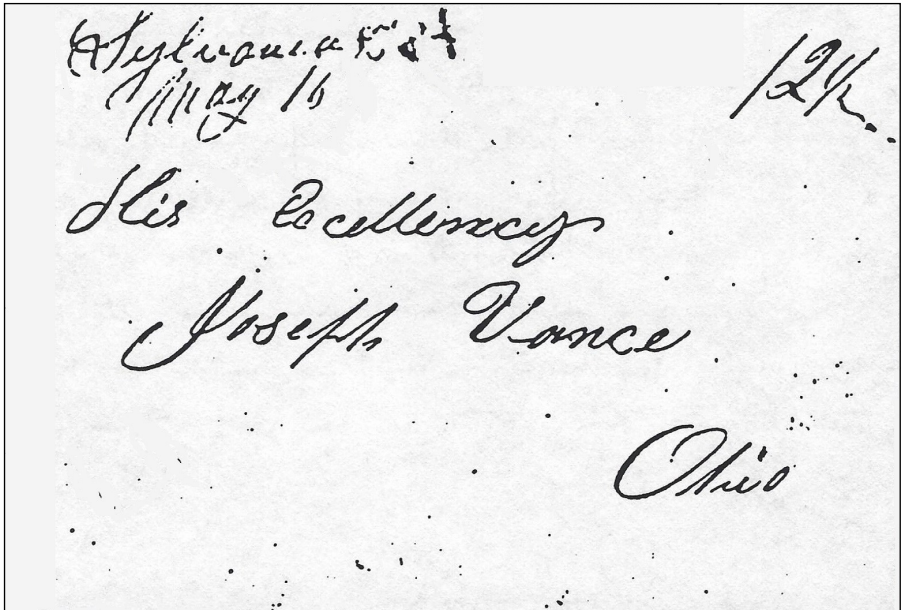 Sylvania
May 16
12½
His Excellency
Joseph Vance
Ohio